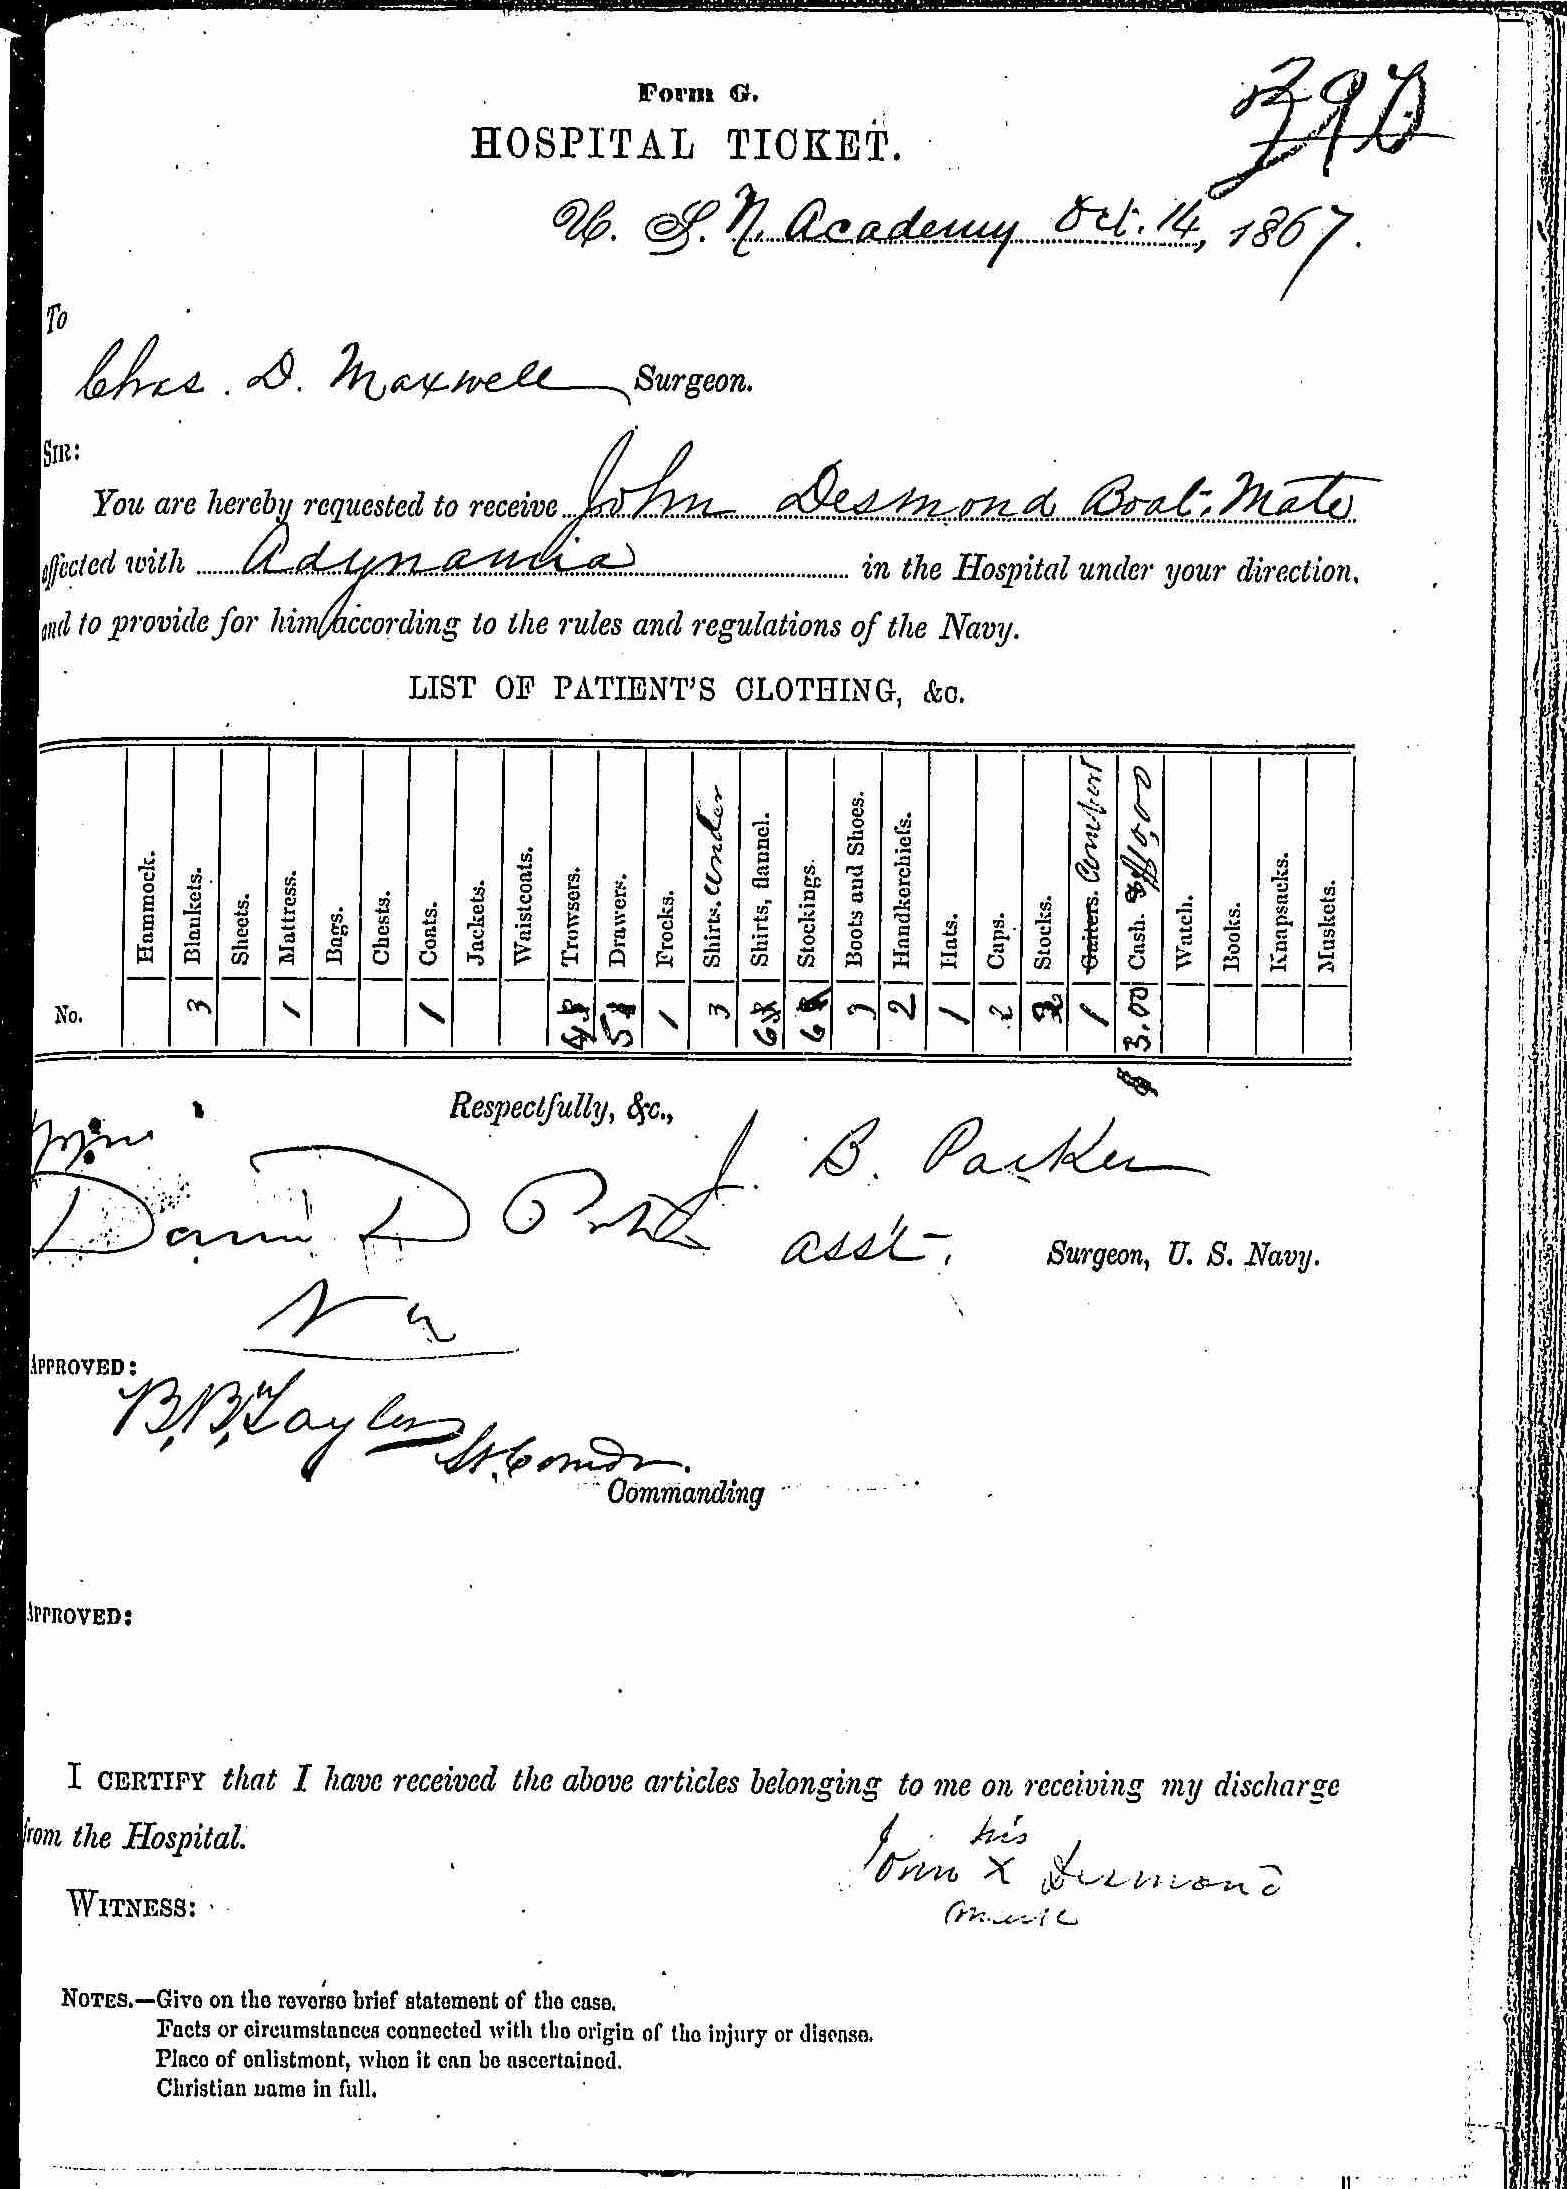 Form G.
HOSPITAL TICKET.
390
U. S. N. Academy Oct. 14, 1867.
To
Chas. D. Maxwell Surgeon.
SIR:
You are hereby requested to receive John Desmond Boat. Mate
affected with Adynamia in the Hospital under your direction,
and to provide for him according to the rules and regulations of the Navy.
LIST OF PATIENT'S CLOTHING, &c.
Hammock. Blankets. Sheets. Mattress. Bags. Chests. Coats. Jackets. Waistcoats. Trowsers. Drawers. Frocks. Shirts. under Shirts, flannel. Stockings. Boots and Shoes. Handkerchiefs. Hats. Caps. Stocks. Gaiters. Cash. Watch. Books. Knapsacks. Muskets.
No. 3 1 1 4 5 1 3 6 6 2 1 2 1 3.00
Respectfully, &c.,
J. B. Parker
asst. Surgeon, U. S. Navy.
APPROVED:
B. B. Taylor
Lt. Comdr.
Commanding
APPROVED:
I CERTIFY that I have received the above articles belonging to me on receiving my discharge
from the Hospital.
his
John X Desmond
mark
WITNESS:
NOTES.—Give on the reverse brief statement of the case.
Facts or circumstances connected with the origin of the injury or disease.
Place of enlistment, when it can be ascertained.
Christian name in full.